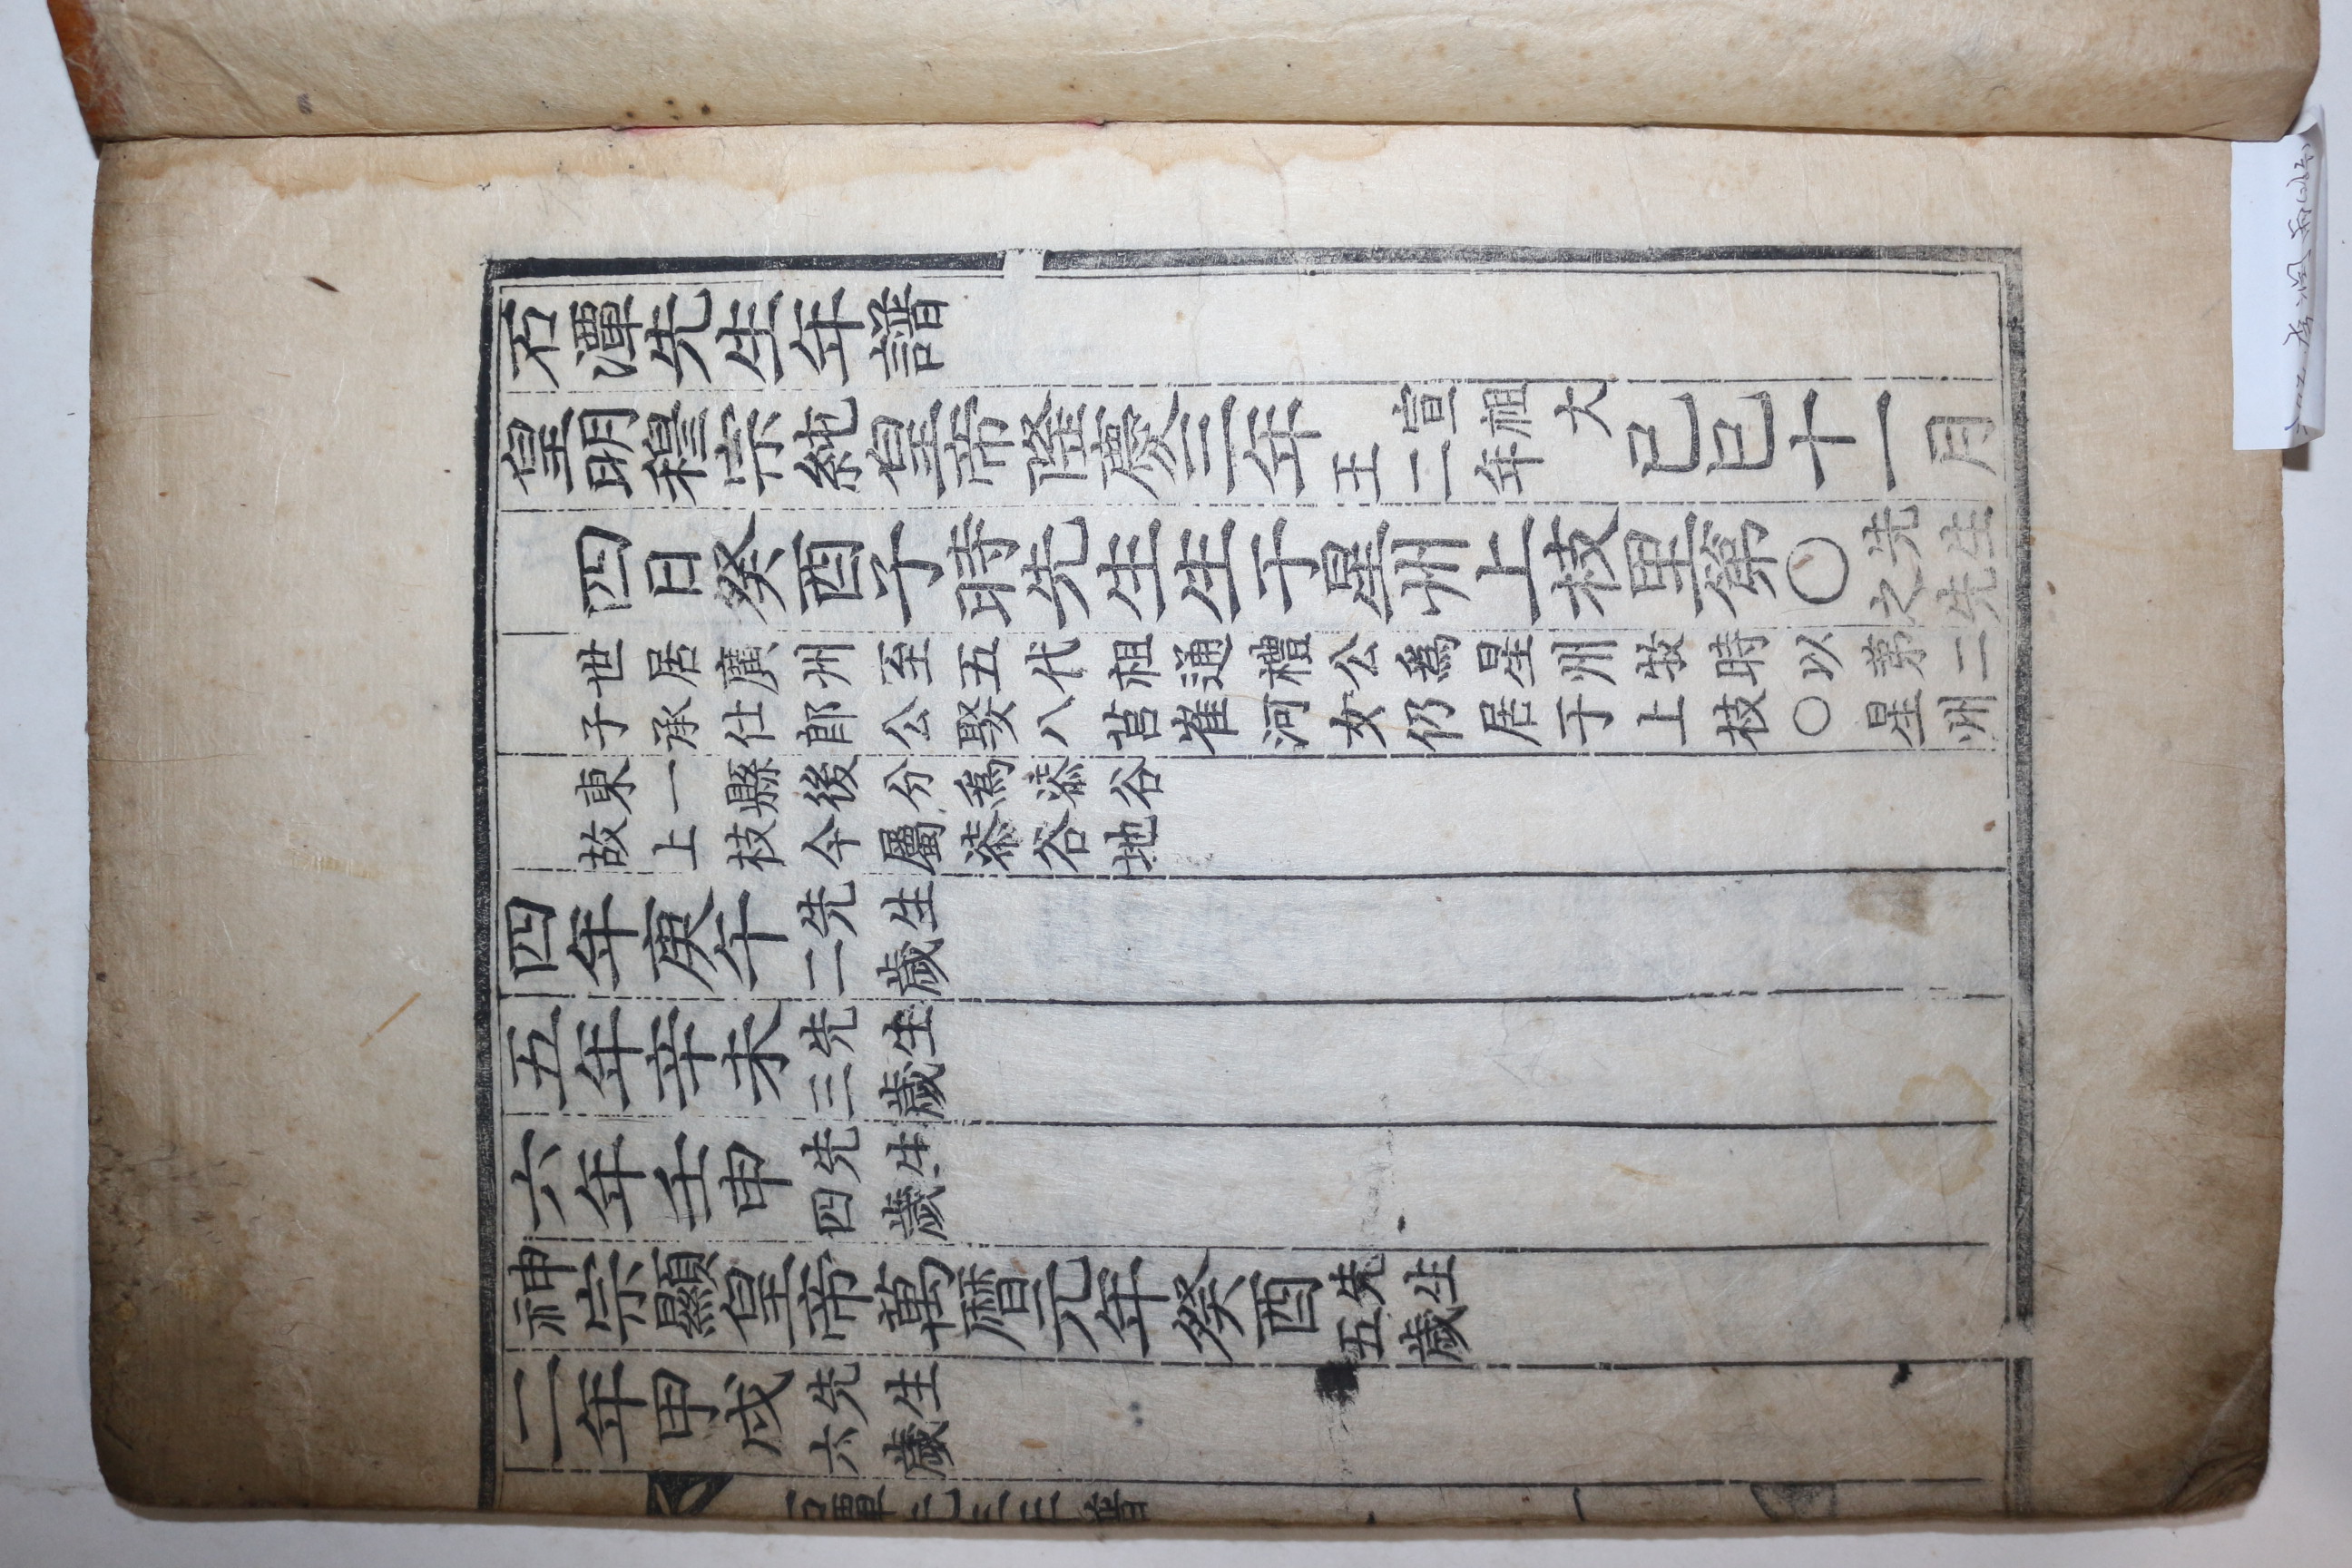 石潭先生年譜
皇明穆宗純皇帝隆慶三年宣祖大王二年己巳十一月
四日癸酉子時先生生于星州上枝里第〇先生之先
世居廣州至五代祖通禮公爲星州牧時以第二
子承仕郎公娶八莒崔河女仍居于上枝〇星州
東一縣後分爲漆谷
故上枝今屬漆谷地
四年庚午先生二歲
五年辛未先生三歲
六年壬申先生四歲
神宗顯皇帝萬曆元年癸酉先生五歲
二年甲戌先生六歲
石潭先生年譜 一